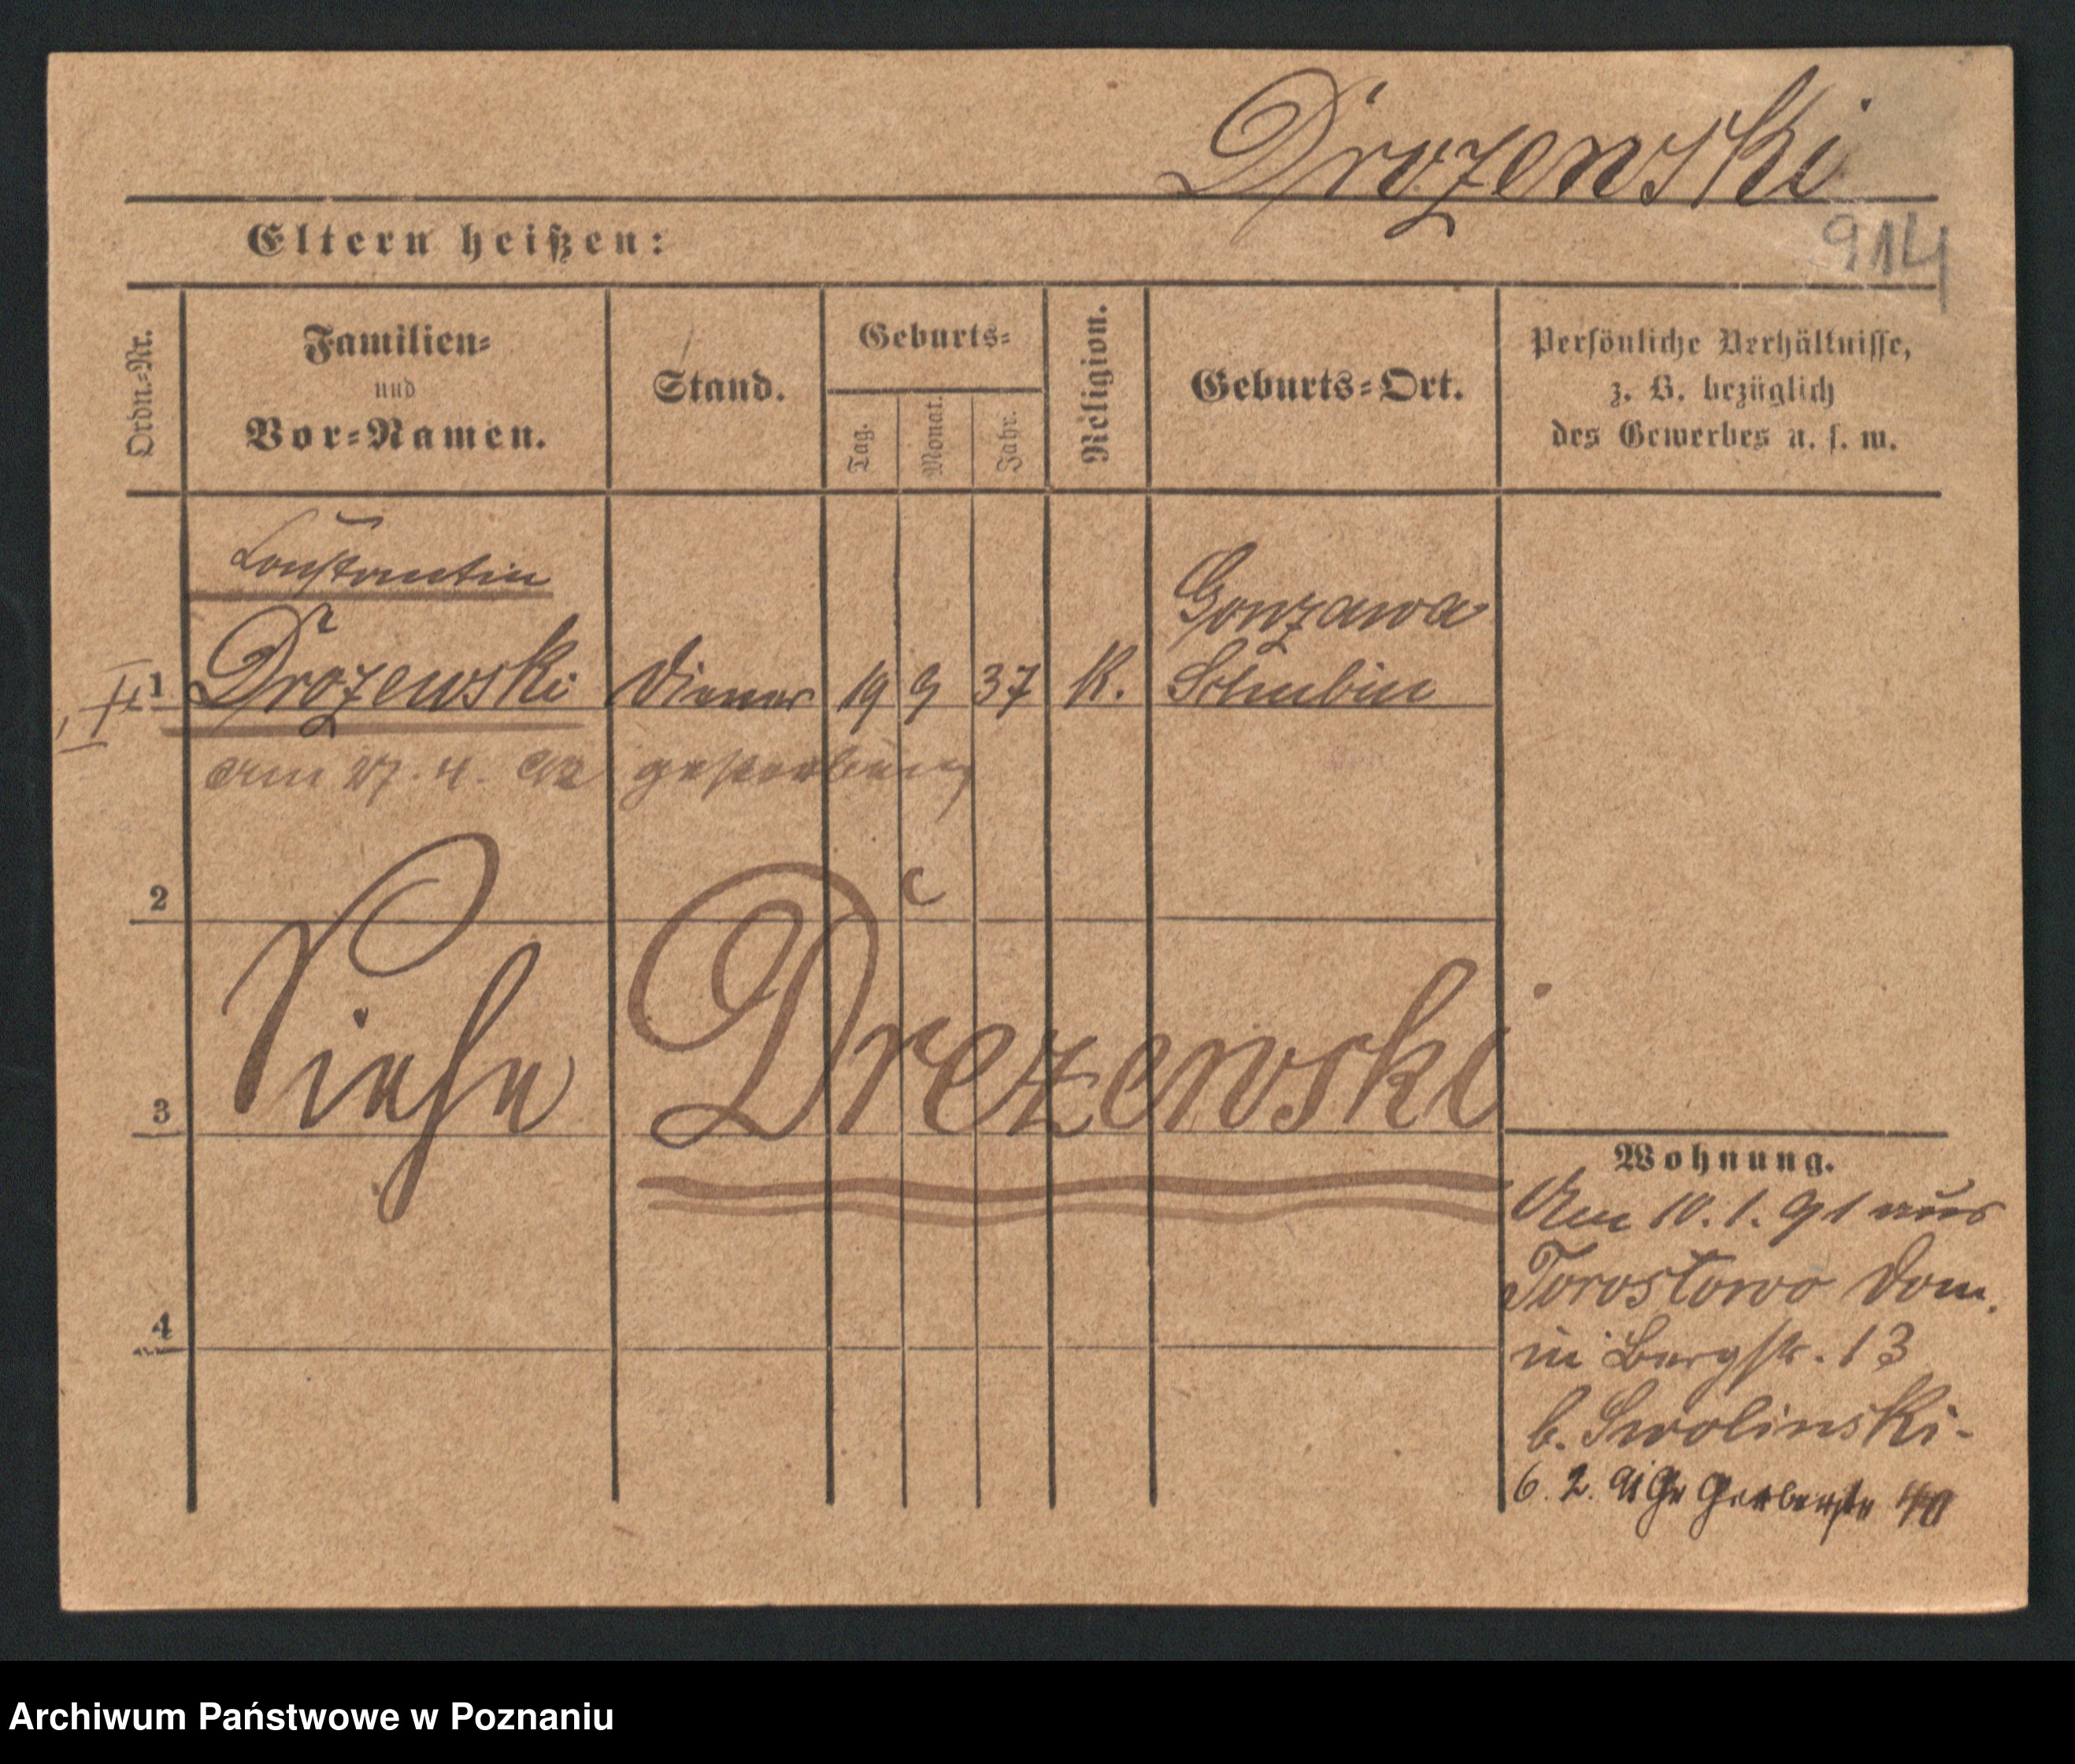 Drozewski
914
Eltern heißen:
Ordn.-Nr.
Familien-
und
Vor-Namen.
Stand.
Geburts-
Tag.
Monat.
Jahr.
Religion.
Geburts-Ort.
Persönliche Verhältnisse,
z. B. bezüglich
des Gewerbes u. s. w.
Constantin
1 Drozewski Diener 19 9 37 K. Gonzawa
Schubin
am 27. 4. 92 gestorben
2
Siehe Drezewski
3
4
Wohnung.
Am 10. 1. 91 aus
Dom.
in Bergstr. 13
b. Swolinski-
6. 2. 91 Gr Gerberstr 40
Archiwum Państwowe w Poznaniu